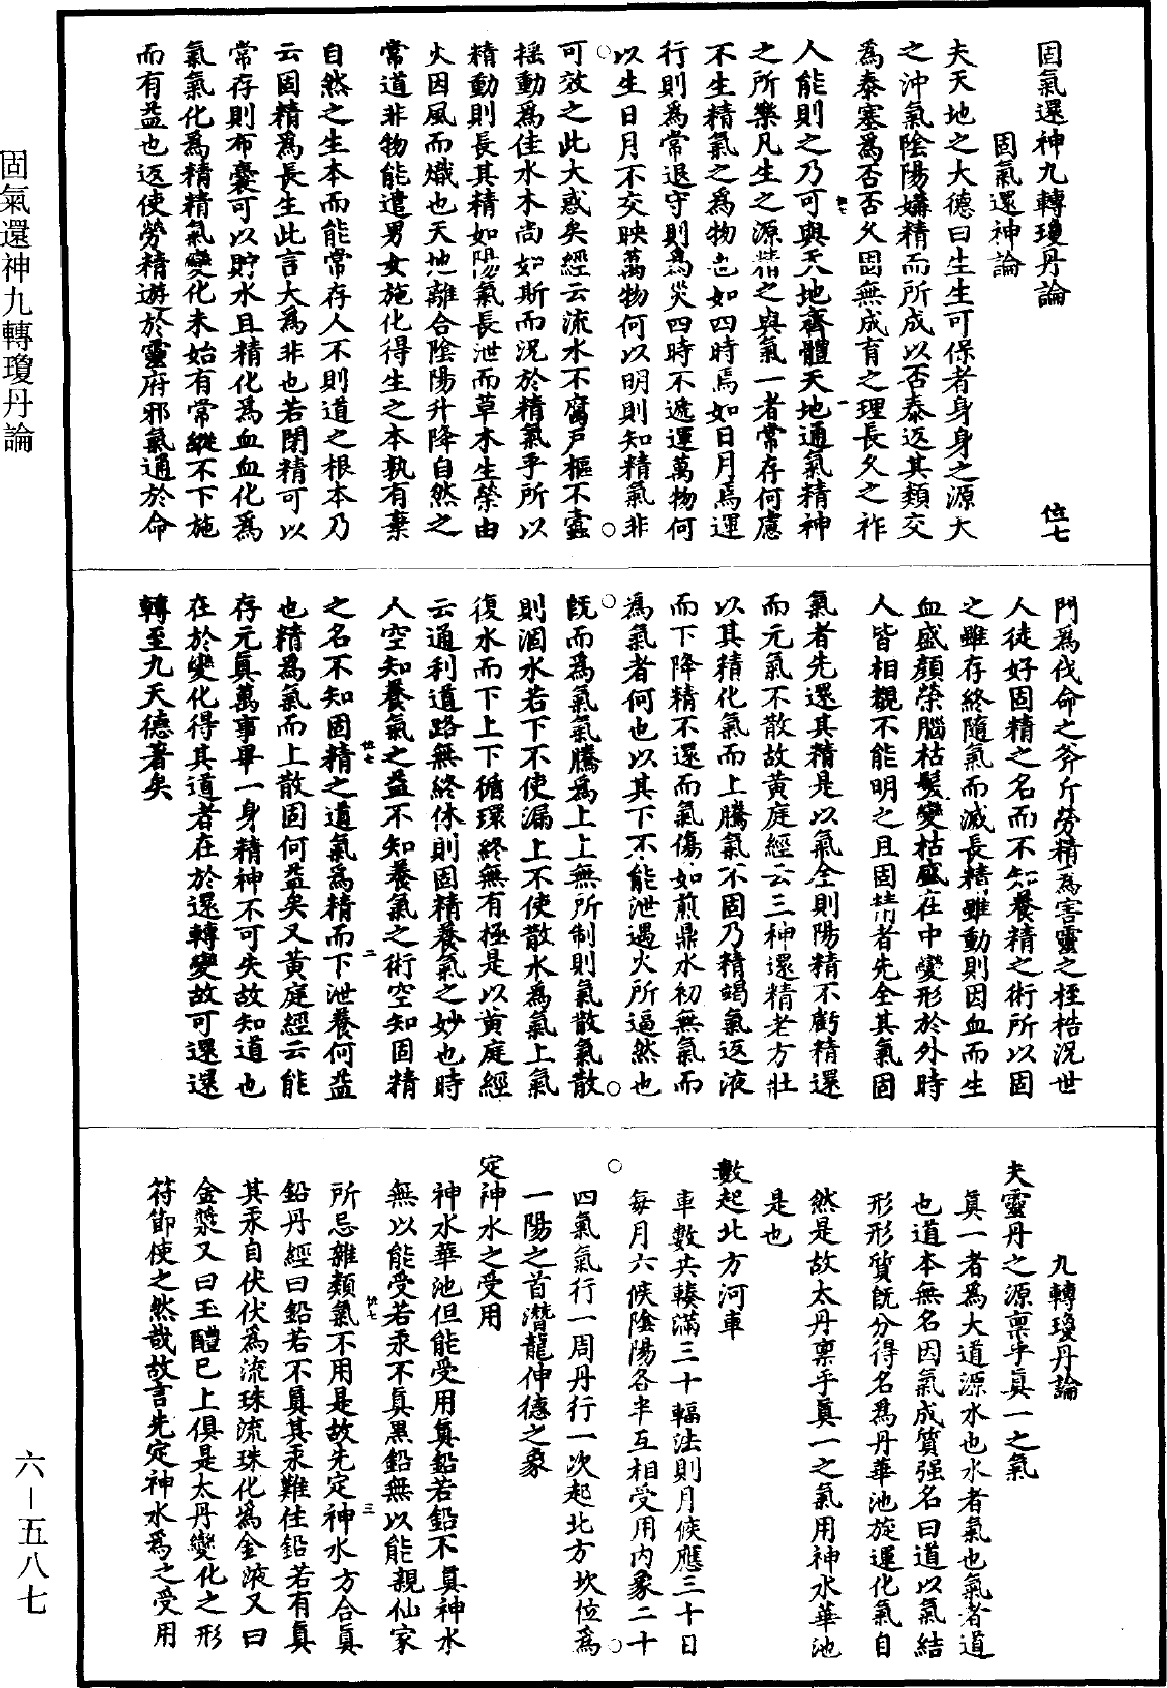 固氣還神九轉瓊丹論 位七
固氣還神論
夫天地之大德曰生生可保者身身之源大
之沖氣陰陽媾精而所成以否泰返其類交
為泰塞為否否久固無成有之理長久之祚
人能則之乃可與天地齊體天地通氣精神
之所樂凡生之源精之與氣一者常存何慮
不生精氣之為物也如四時焉如日月焉運
行則為常退守則為災四時不遞運萬物何
以生日月不交映萬物何以明則知精氣非
可效之此大惑矣經云流水不腐戶樞不蠹
摇動為佳水木尚如斯而況於精氣乎所以
精動則長其精如陽氣長泄而草木生榮由
火因風而熾也天地離合陰陽升降自然之
常道非物能遣男女施化得生之本孰有棄
自然之生本而能常存人不則道之根本乃
云固精為長生此言大為非也若閉精可以
常存則布囊可以貯水且精化為血血化為
氣氣化為精精氣變化未始有常縱不下施
而有益也返使勞精遊於靈府邪氣通於命
門為伐命之斧斤勞精為害靈之桎梏況世
人徒好固精之名而不知養精之術所以固
之雖存終隨氣而減長精雖動則因血而生
血盛顏榮腦枯髮變枯盛在中變形於外時
人皆相覩不能明之且固精者先全其氣固
氣者先還其精是以氣全則陽精不虧精還
而元氣不散故黄庭經云三神還精老方壯
以其精化氣而上騰氣不固乃精竭氣返液
而下降精不還而氣傷如煎鼎水初無氣而
為氣者何也以其下不能泄遇火所逼然也
既而為氣氣騰為上上無所制則氣散氣散
則涸水若下不使漏上不使散水為氣上氣
復水而下上下循環終無有極是以黄庭經
云通利道路無終休則固精養氣之妙也時
人空知養氣之益不知養氣之術空知固精
之名不知固精之道氣為精而下泄養何益
也精為氣而上散固何益矣又黄庭經云能
存元真萬事畢一身精神不可失故知道也
在於變化得其道者在於還轉變故可還還
轉至九天德著矣
九轉瓊丹論
夫靈丹之源禀乎真一之氣
真一者為大道源水也水者氣也氣者道
也道本無名因氣成質强名曰道以氣結
形形質既分得名為丹華池旋運化氣自
然是故太丹禀乎真一之氣用神水華池
是也
數起北方河車
車數共輳滿三十輻法則月候應三十日
每月六候陰陽各半互相受用内象二十
四氣氣行一周丹行一次起北方坎位為
一陽之首潛龍伸德之象
定神水之受用
神水華池但能受用真鉛若鉛不真神水
無以能受若汞不真黑鉛無以能親仙家
所忌雜類氣不用是故先定神水方合真
鉛丹經曰鉛若不真其汞難住鉛若有真
其汞自伏伏為流珠流珠化為金液又曰
金漿又曰玉醴已上俱是太丹變化之形
符節使之然哉故言先定神水為之受用
固氣還神九轉瓊丹論
六－五八七